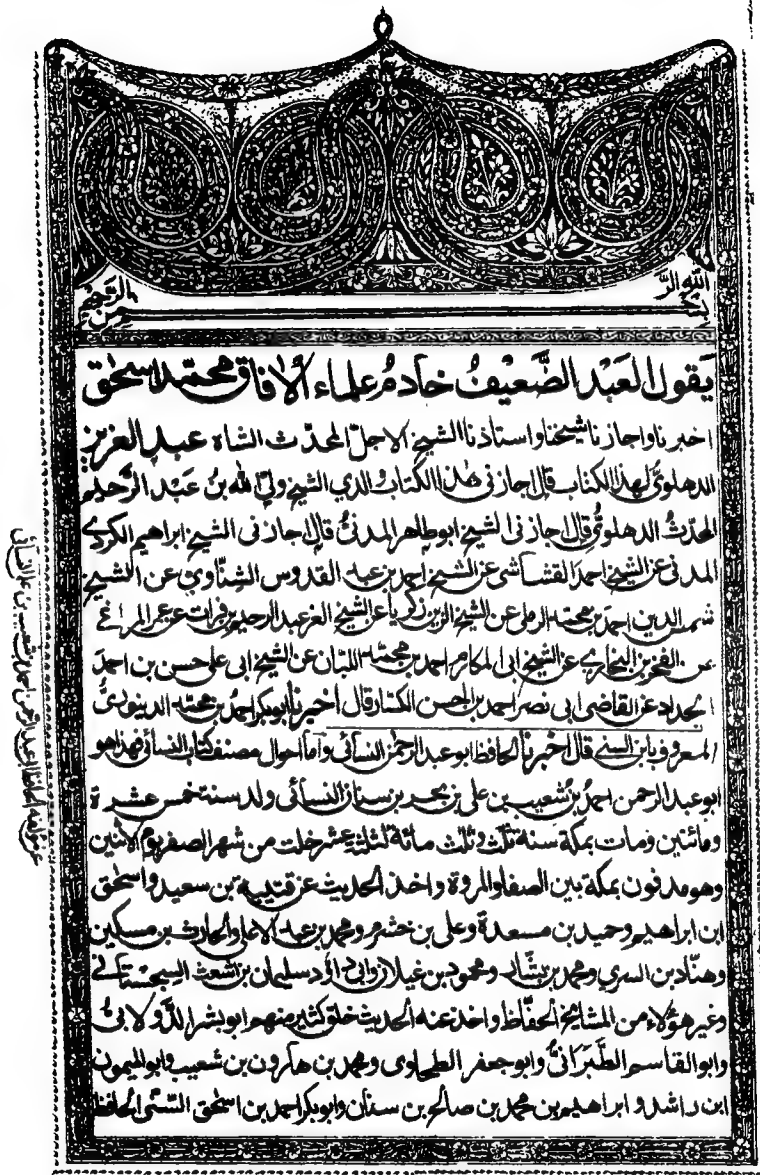 بسم الله الرحمن الرحيم
يقول العبد الضعيف خادم علماء الافاق محمد اسحٰق
اخبرنا واجازنا شيخنا واستاذنا الشيخ الاجل المحدث الشاه عبد العزيز
الدهلوي لهذا الكتاب قال اجازني هذا الكتاب والدي الشيخ ولي الله بن عبد الرحيم
المحدث الدهلوي قال اجازني الشيخ ابو طاهر المدني قال اجازني الشيخ ابراهيم الكردي
المدني عن الشيخ احمد القشاشي عن الشيخ احمد بن عبد القدوس الشناوي عن الشيخ
شمس الدين احمد بن محمد الرملي عن الشيخ الزين زكريا عن الشيخ العز عبد الرحيم بن فرات عن عمر المراغي
عن الفخر بن البخاري عن الشيخ ابي المكارم احمد بن محمد اللبان عن الشيخ ابي علي حسن بن احمد
الحداد عن القاضي ابي نصر احمد بن الحسن الكسار قال اخبرنا ابوبكر احمد بن محمد الدينوري
المعروف بابن السني قال اخبرنا الحافظ ابو عبد الرحمٰن النسائي واما احوال مصنف كتاب النسائي فهذا هو
ابو عبد الرحمن احمد بن شعيب بن علي بن بحر بن سنان النسائي ولد سنة خمس عشرة
ومائتين ومات بمكة سنة ثلث وثلث مائة لثلث عشر خلت من شهر الصفر يوم الاثنين
وهو مدفون بمكة بين الصفا والمروة واخذ الحديث عن قتيبة بن سعيد واسحٰق
ابن ابراهيم وحميد بن مسعدة وعلي بن خشرم ومحمد بن عبد الاعلى والحارث بن مسكين
وهناد بن السري ومحمد بن بشار ومحمود بن غيلان وابي داؤد سليمان بن اشعث السجستاني
وغير هؤلاء من المشايخ الحفاظ واخذ عنه الحديث خلق كثير منهم ابو بشر الدولابي
وابو القاسم الطبراني وابو جعفر الطحاوي ومحمد بن هارون بن شعيب وابو الميمون
ابن راشد و ابراهيم بن محمد بن صالح بن سنان وابو بكر احمد بن اسحٰق السني الحافظ